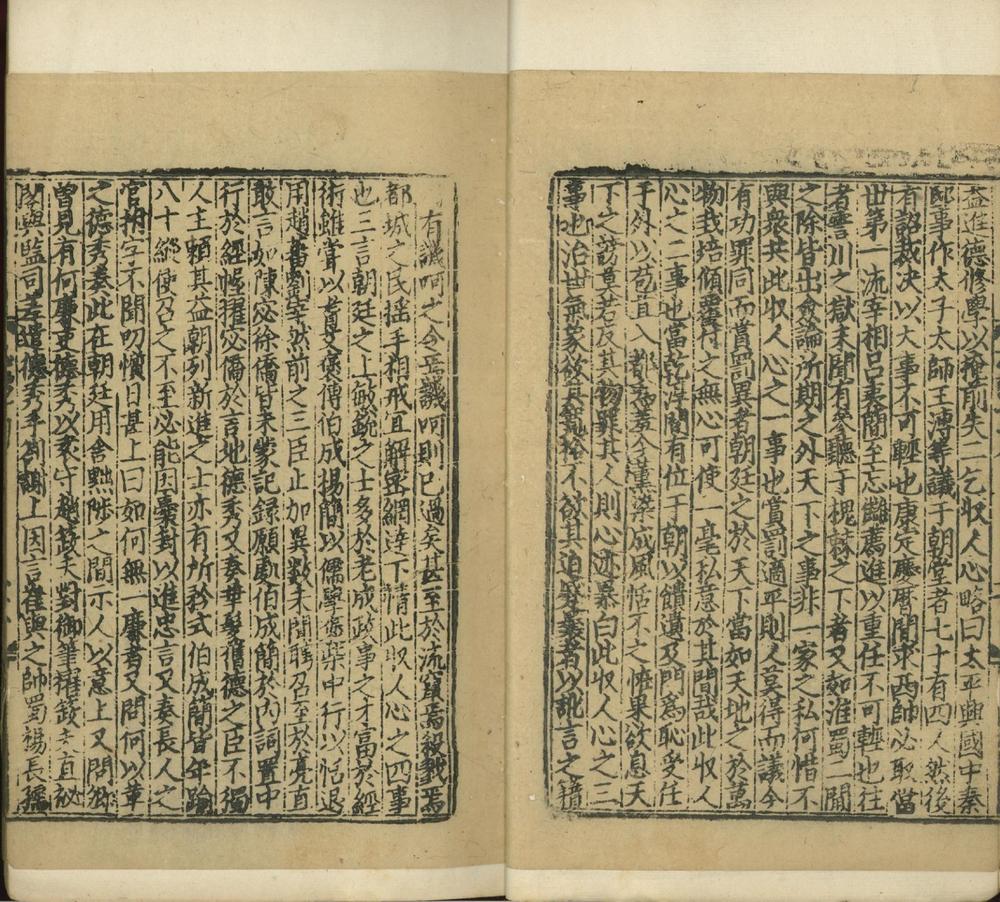 益進德修學以掩前失二乞收人心略曰太平興國中秦
邸事作太子太師王溥等議于朝堂者七十有四人然後
有詔裁决以大事不可輕也康定慶曆間求西帥必取當
世第一流宰相呂夷簡至忘讎薦進以重任不可輕也往
者霅川之獄未聞有參聽于槐棘之下者又如淮蜀二閫
之除皆出僉論所期之外天下之事非一家之私何惜不
與衆共此收人心之一事也賞罰適平則人莫得而議今
有功罪同而賞罰異者朝廷之於天下當如天地之於萬
物栽培傾覆付之無心可使一毫私意於其間哉此收人
心之二事也當乾淳間有位于朝以饋遺及門爲恥受任
手外以苞苴入都爲羞今薰染成風恬不之恠果欲息天
下之謗莫若反其物罪其人則心迹暴白此收人心之三
事也治世氣象欲其寬裕不欲其迫
以訛言之籍
有譏呵之令焉譏呵則已過矣甚至於流竄焉殺戮焉
都城之民揺手相戒宜解密網達下情此收人心之四事
也三言朝廷之上敏銳之士多於老成政事之才富於經
術雖嘗以耆艾褒傅伯成楊簡以儒學褒柴中行以恬退
用趙蕃劉宰然前之三臣止加異數未聞聘召至於亮直
敢言如陳宓徐僑皆未蒙記録願處伯成簡於内祠置中
行於經幄擢宓僑於言地德秀又奏華髮舊德之臣不獨
人主頼其益朝列新進之士亦有所矜式伯成簡皆年踰
八十縱使召之不至必能因囊封以進忠言又奏長人之
官拊字不聞叨懫日甚上曰如何無一廉者又問何以革
之德秀奏此在朝廷用舍黜陟之間示人以意上又問卿
曾見有何廉吏德秀以袁守趙𥲅夫對御筆擢𥲅夫直祕
閣與監司差遣德秀手劄謝上因言崔與之帥蜀楊長孺